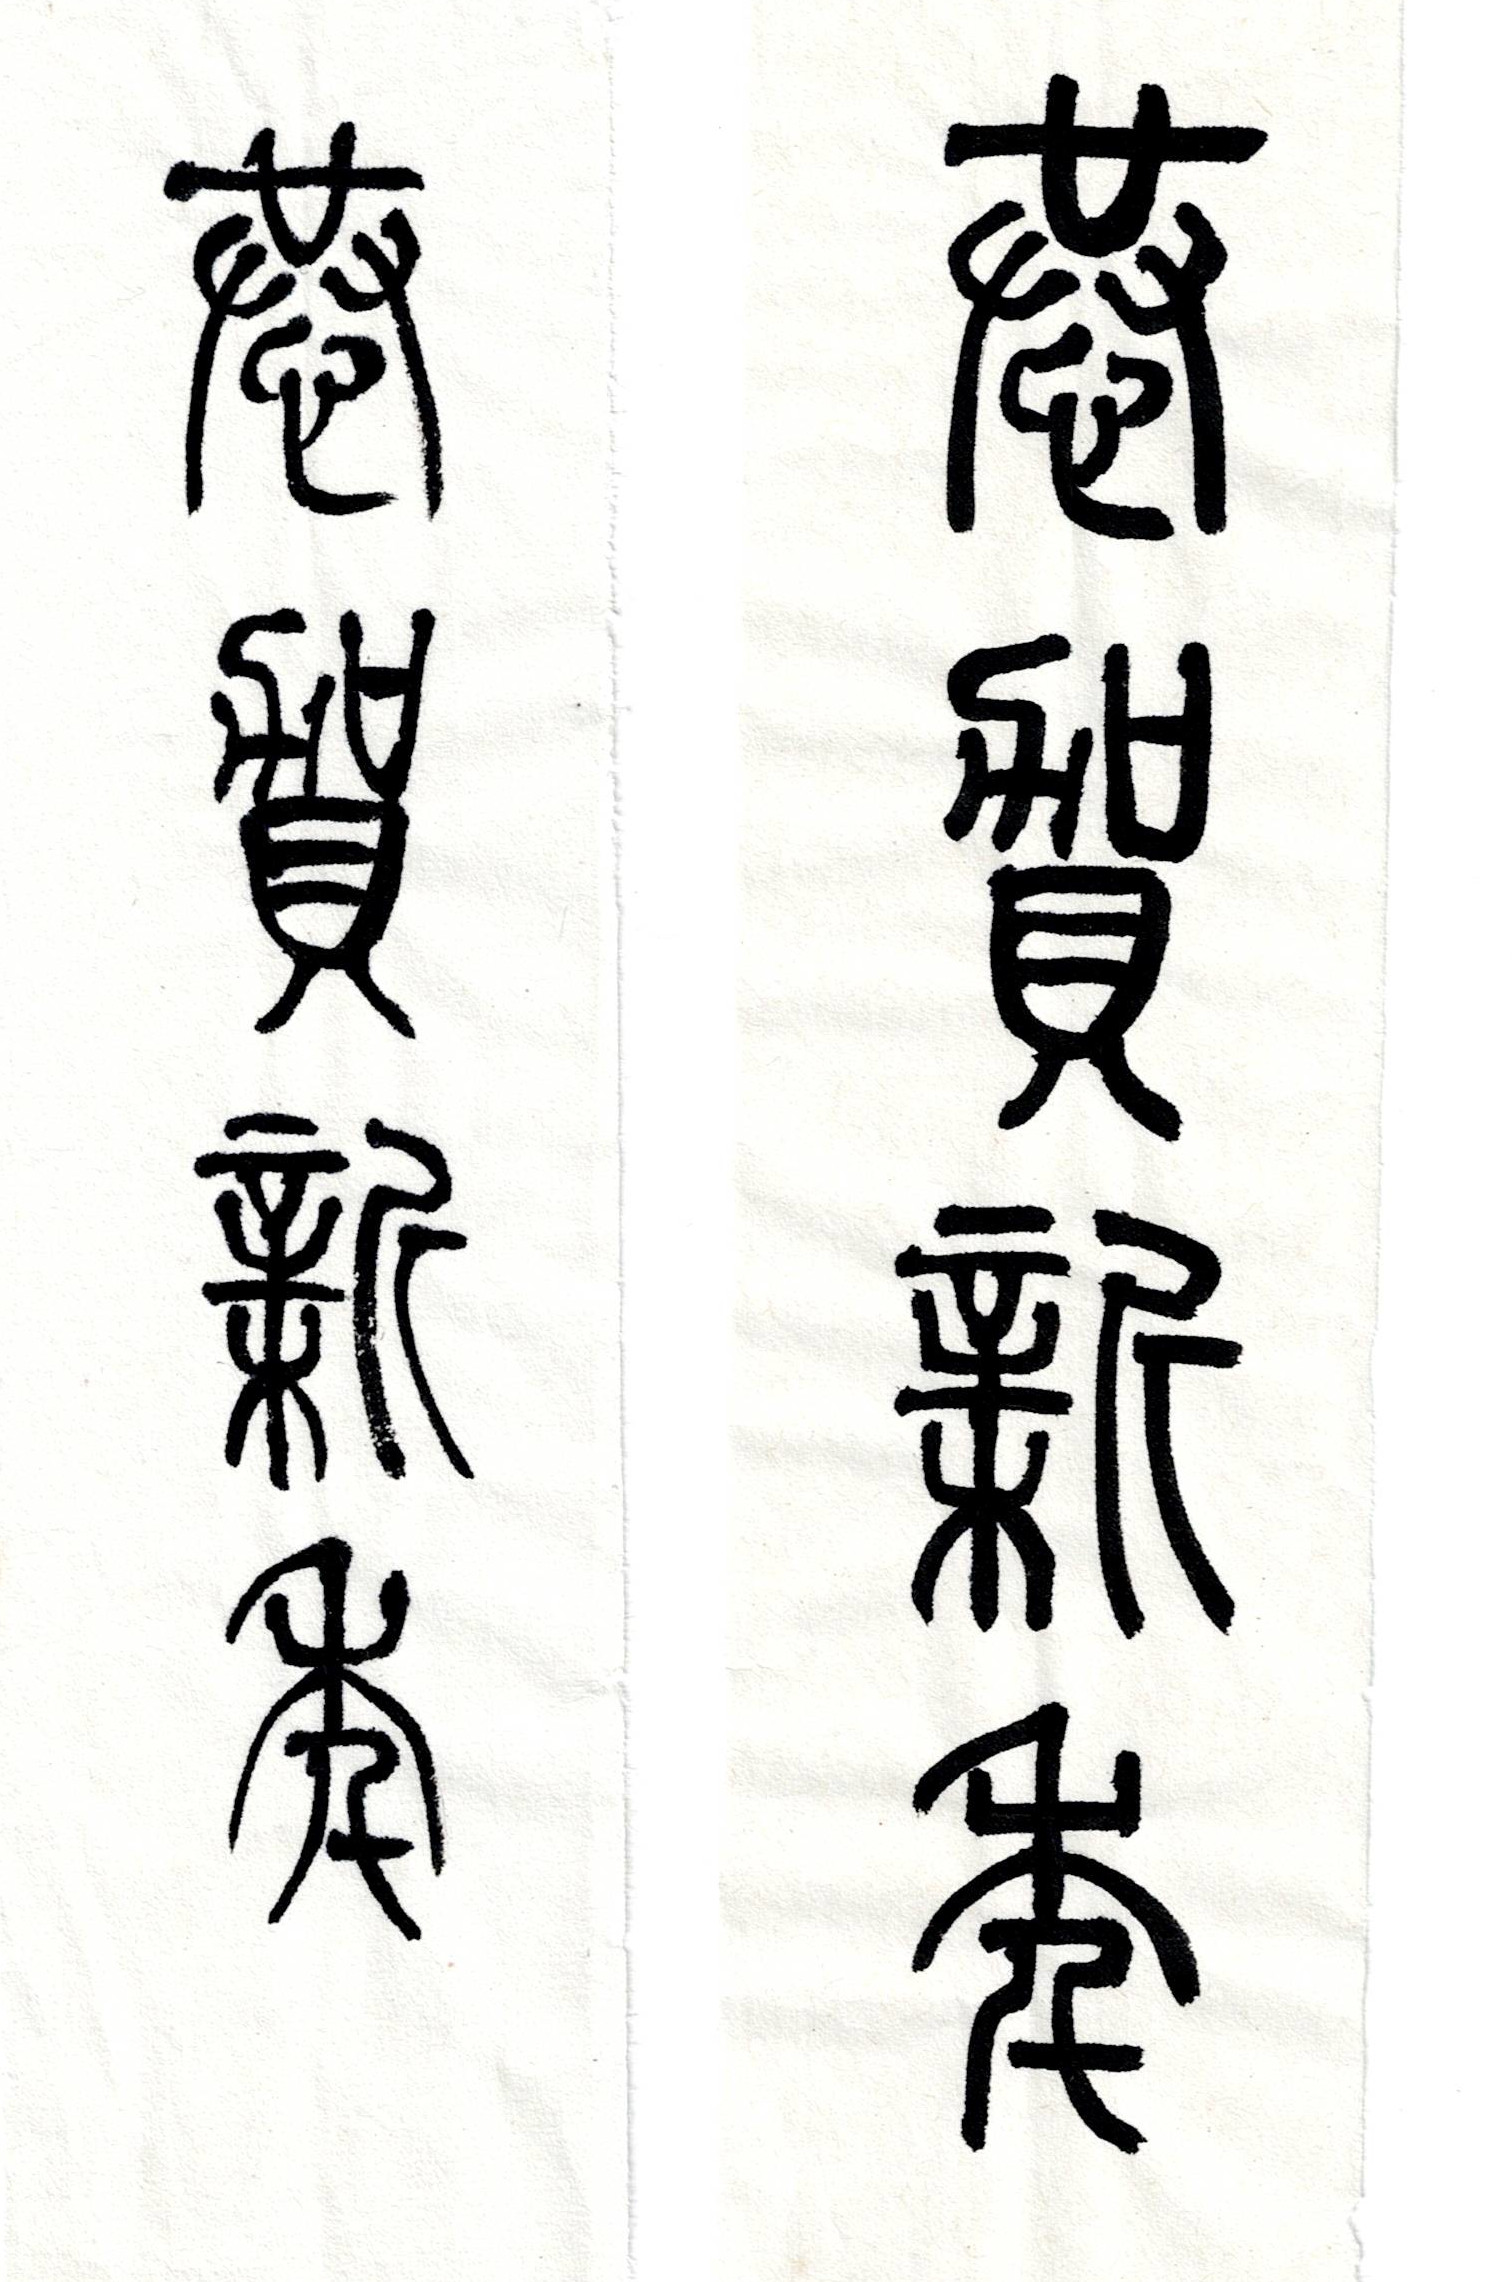 恭賀新年
恭賀新年